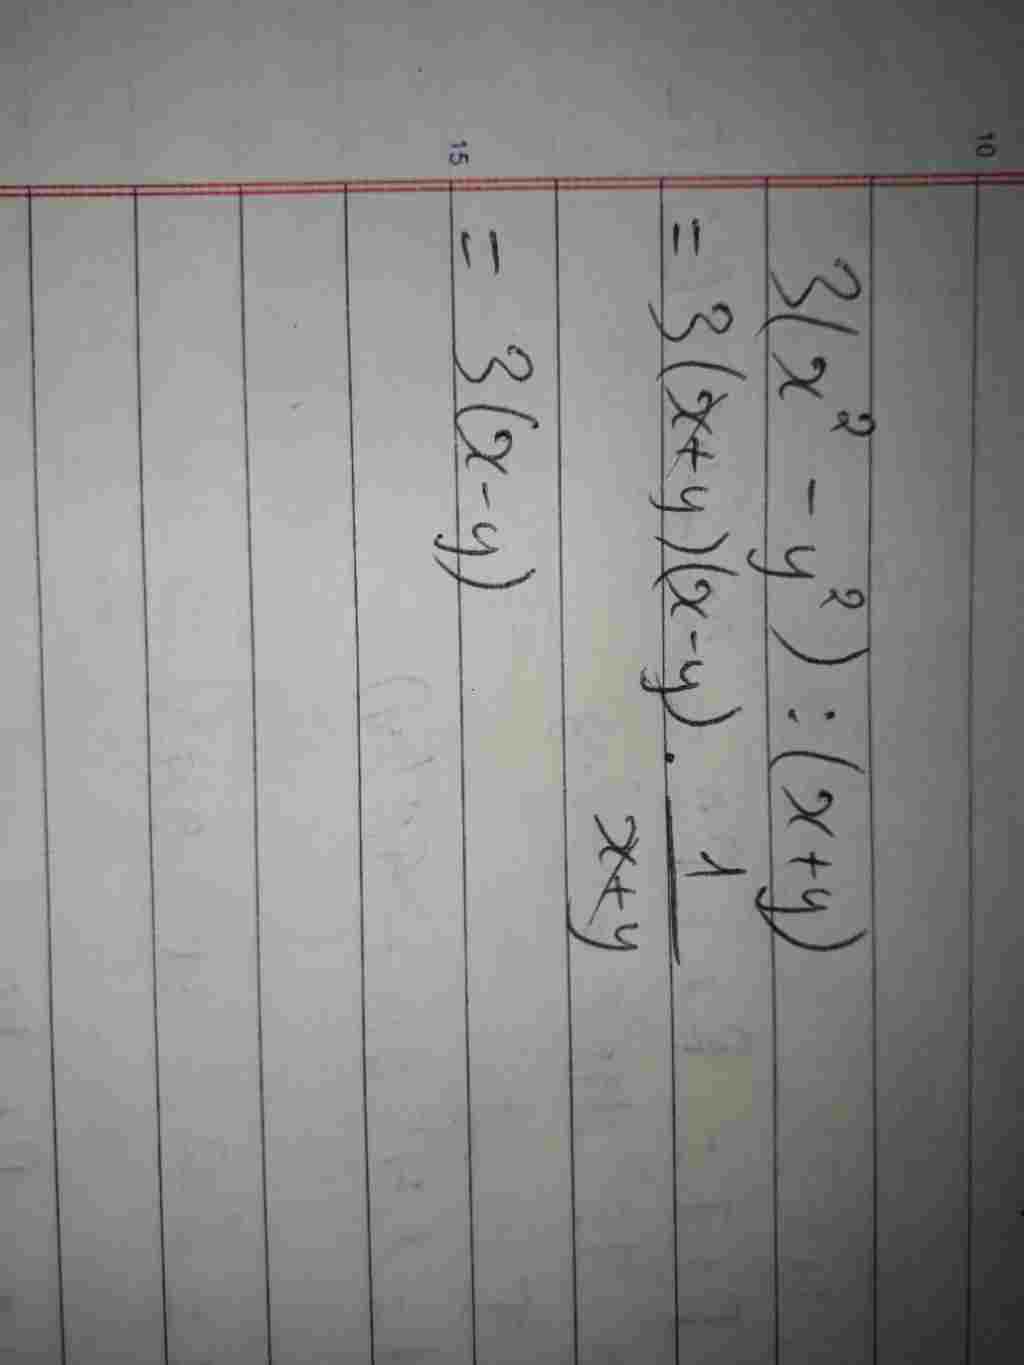 10
3(x² - y²) : (x+y)
= 3(x+y)(x-y) . 1
x+y
15
= 3(x-y)